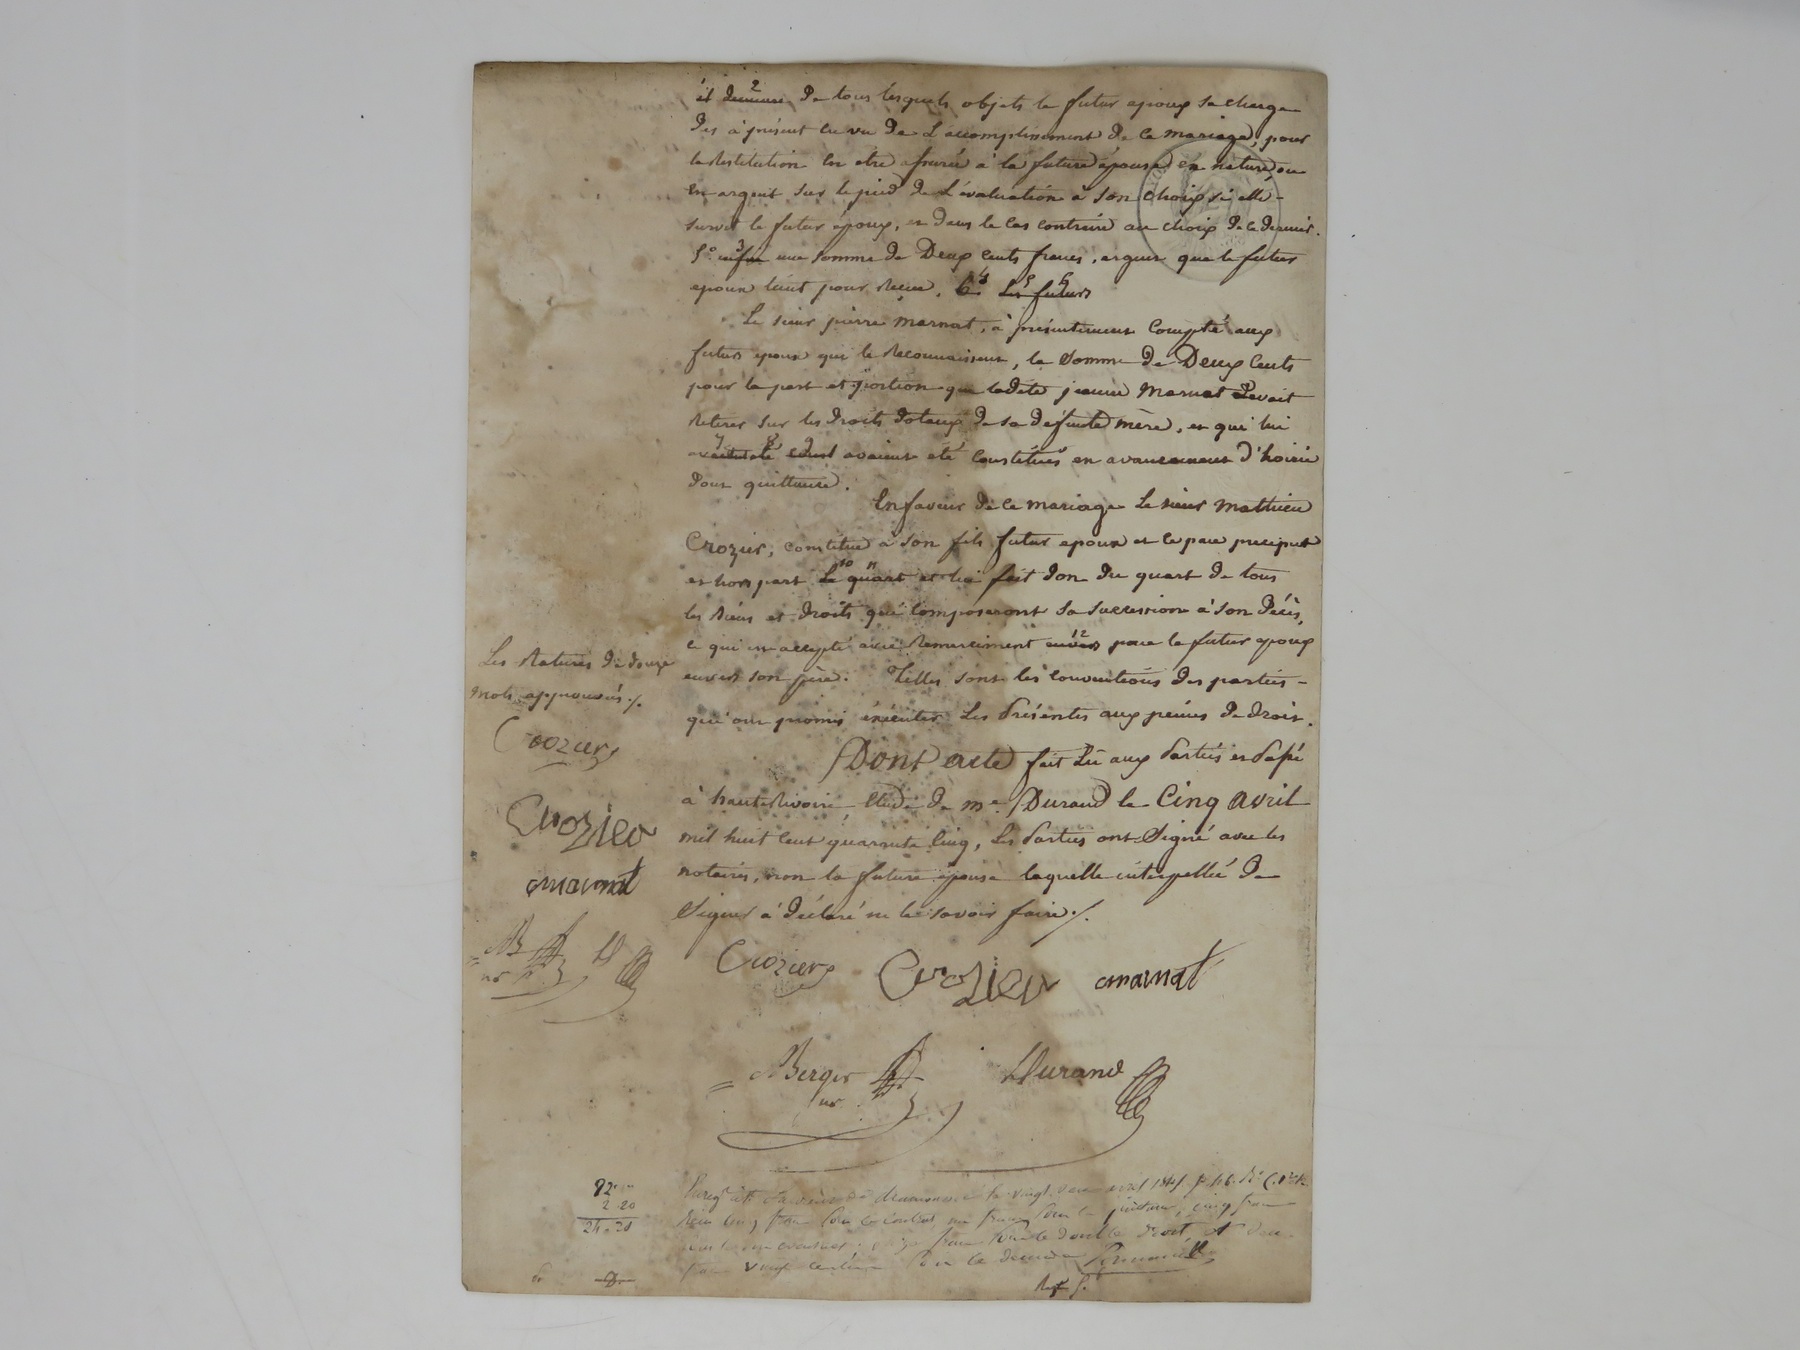 de tous lesquels objets le futur epoux se charge
Des à présent en vu de L'accomplissement de ce mariage, pour
la Restitution en etre assurée à la future épouse en nature, ou
en argent sur le pied de L'évaluation à son choix si elle -
survit le futur époux, et dans le cas contraire au choix de ce dernier.
5° enfin une somme de Deux cents francs, argent que le futur
epoux tient pour Reçue. 6° Les futurs
Le sieur pierre Marnat, à présentement Compté aux
futurs epoux qui le Reconnaissent, la Somme de Deux Cents
pour la part et portion que ladite jeanne Marnat devait
Retirer sur les droits dotaux de sa défunte mère, et qui lui
avaient été Constitués en avancement d'hoirie
Dont quittance.
En faveur de ce mariage Le sieur Mathieu
Crozier, constitue à son fils futur epoux et ce par preciput
et hors part Le quart et lui fait don du quart de tous
les Biens et droits qui Composeront sa succession à son Décès,
ce qui est accepté avec Remerciment envers par le futur epoux
envers son père. Telles sont les conventions des parties -
qui ont promis éxécuter Les Présentes aux peines de droit.
Dont acte fait Lu aux Parties et Passé
à hauteRivoire, Etude de Me Durand le Cinq avril
mil huit cent quarante cinq, Les Parties ont Signé avec les
notaires, non la future épouse laquelle interpellée de
Signer à déclaré ne le savoir faire ./.
Les Ratures de douze
mots approuvés ./.
Crozier
Crozier
marnat
Crozier Crozier marnat
Berger Durand
nre
22
2.20
24.20
le vingt avril 1845
Reçu cinq francs pour le contrat, un franc pour la quittance, cinq francs
pour le double droit, et deux
francs vingt centimes pour le decime